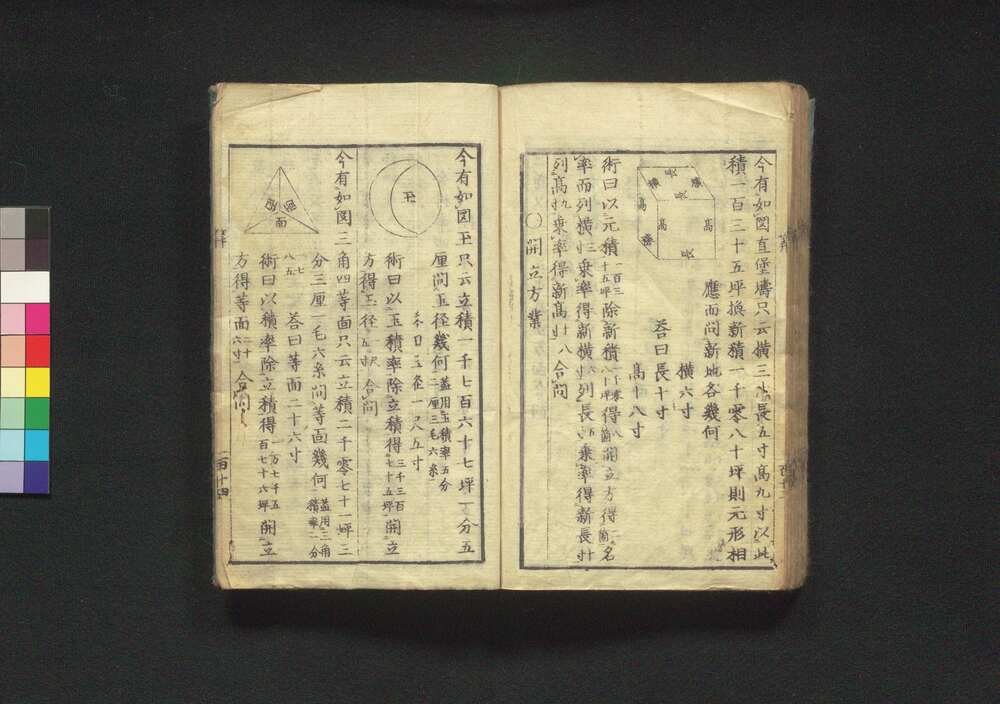 今有如図直堡壔只云横三寸長五寸高九寸以此
積一百三十五坪換新積一千零八十坪則元形相
應而問新地各幾何
横六寸
荅曰長十寸
高十八寸
長
横
横
長
高
高
高
横
長
術曰以元積一百三十五坪除新積一千零八十坪得八箇開立方得二箇名
率而列横三寸乗率得新横六寸列長五寸乗率得新長十寸
列高九寸乗率得新高十八寸合問
○開立方業
今有如図玉只云立積一千七百六十七坪一分五
厘問玉径幾何蓋用玉積率五分二厘三毛六糸
玉
荅曰玉径一尺五寸
術曰以玉積率除立積得三千三百七十五坪開立
方得玉径一尺五寸合問
今有如図三角四等面只云立積二千零七十一坪三
分三厘一毛六糸問等面幾何蓋用三角積率一分
面
七八五
荅曰等面二十六寸
術曰以積率除立積得一万七千五百七十六坪開立
方得等面二十六寸合問
百十四